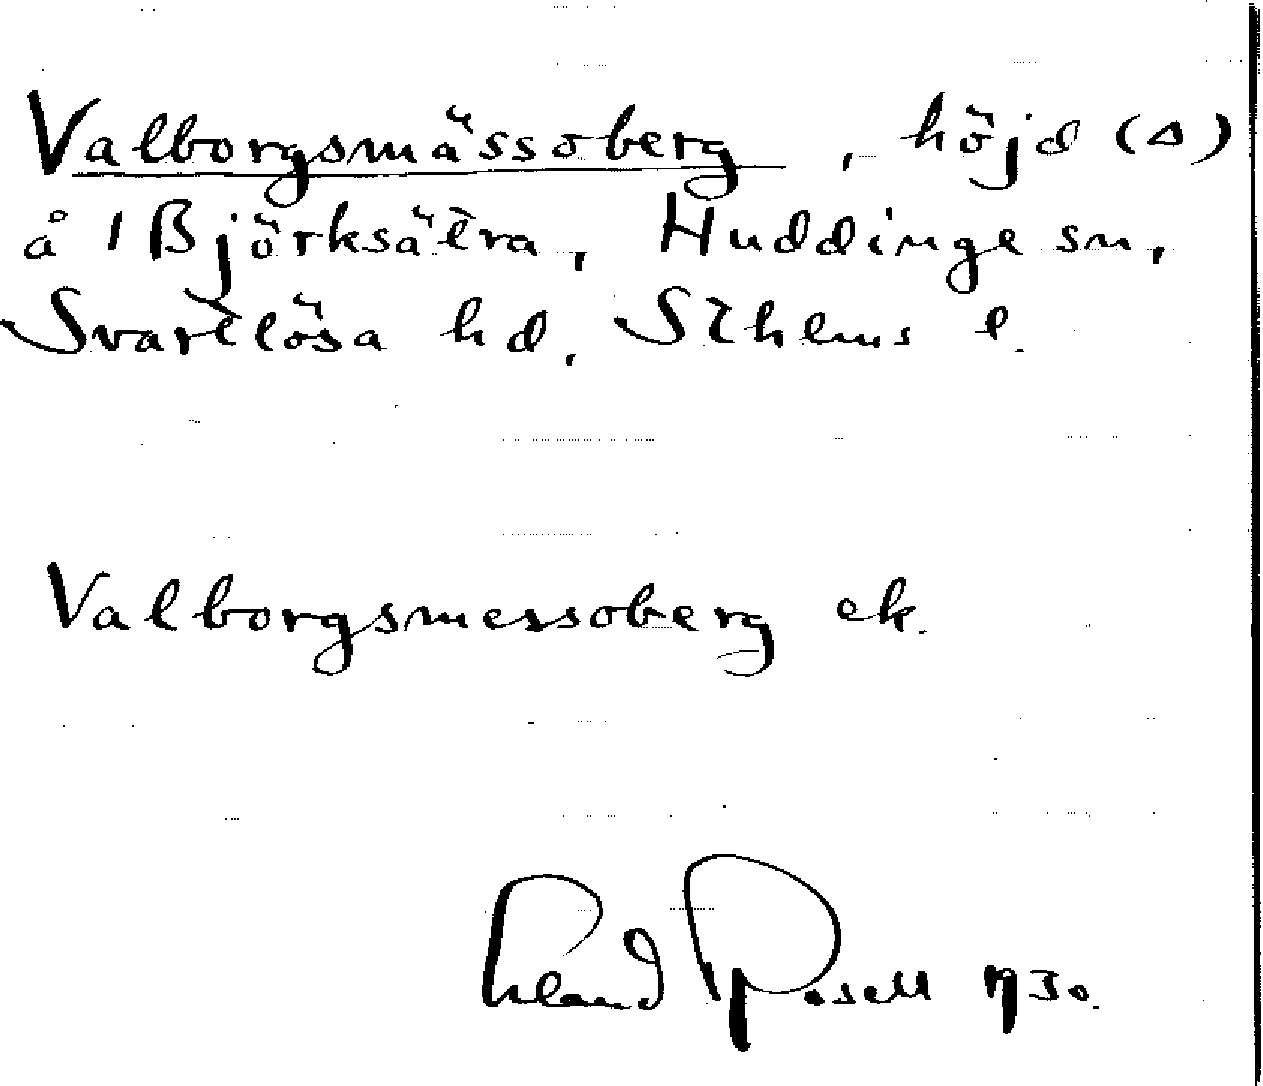 Valborgsmässoberg, höjd (Δ)
å 1 Björksätra, Huddinge sn,
Svartlösa hd, Sthlms l.
Valborgsmessoberg ek.
Erland Rosell 1930.